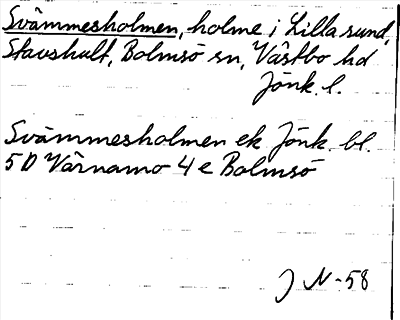 Svämmesholmen, holme i Lilla sund,
Stavshult, Bolmsö sn, Västbo hd
Jönk. l.
Svämmesholmen ek Jönk. bl.
5D Värnamo 4e Bolmsö
J N-58